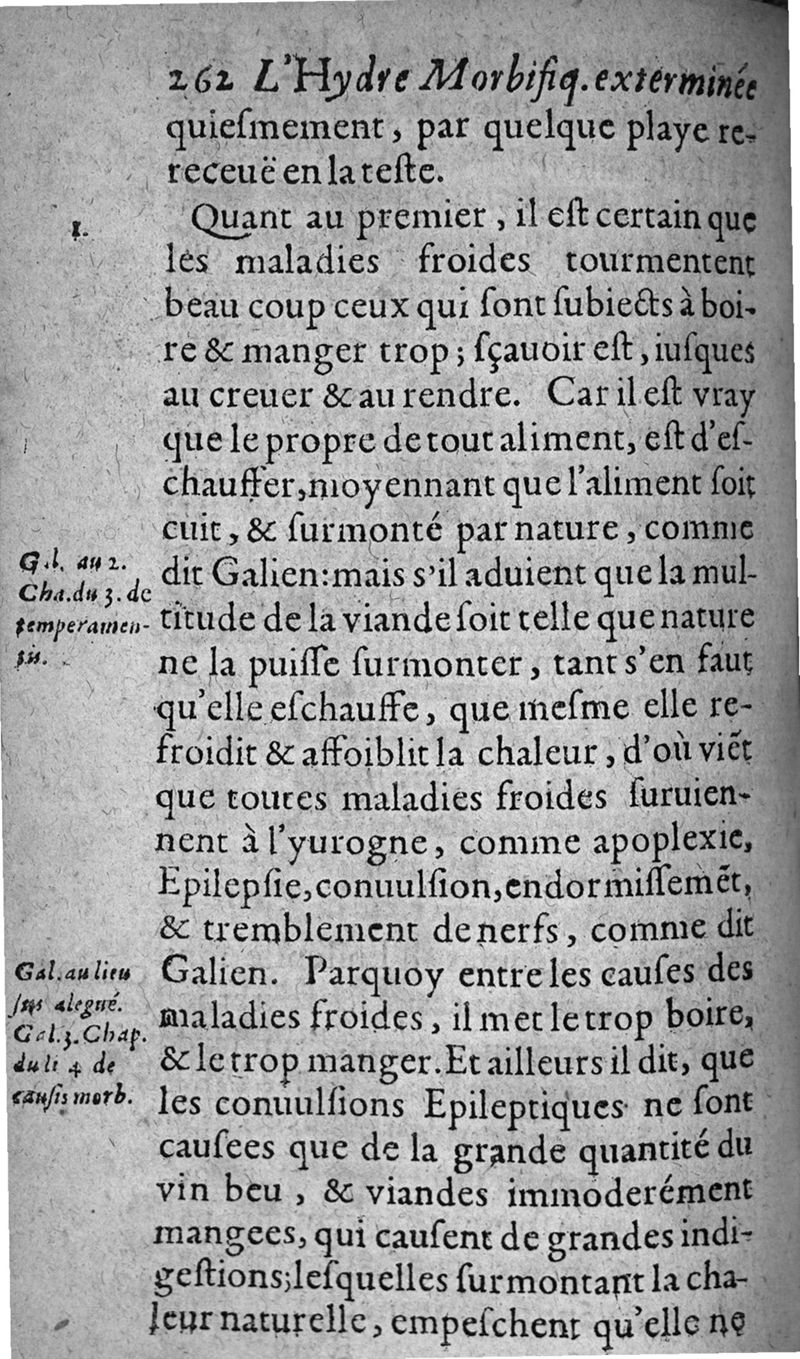 262 L'Hydre Morbifiq. exterminée
quiesmement, par quelque playe re-
receuë en la teste.
1.
Quant au premier, il est certain que
les maladies froides tourmentent
beau coup ceux qui sont subiects à boi-
re & manger trop; sçauoir est, iusques
au creuer & au rendre. Car il est vray
que le propre de tout aliment, est d'es-
chauffer, moyennant que l'aliment soit
cuit, & surmonté par nature, comme
Gal. au 2.
Cha. du 3. de
temperamen-
tis.
dit Galien: mais s'il aduient que la mul-
titude de la viande soit telle que nature
ne la puisse surmonter, tant s'en faut
qu'elle eschauffe, que mesme elle re-
froidit & affoiblit la chaleur, d'où viẽt
que toutes maladies froides suruien-
nent à l'yurogne, comme apoplexie,
Epilepsie, conuulsion, endormissemẽt,
& tremblement de nerfs, comme dit
Gal. au lieu
sus alegué.
Gal. 3. Chap.
du li 4 de
causis morb.
Galien. Parquoy entre les causes des
maladies froides, il met le trop boire,
& le trop manger. Et ailleurs il dit, que
les conuulsions Epileptiques ne sont
causees que de la grande quantité du
vin beu, & viandes immoderément
mangees, qui causent de grandes indi-
gestions; lesquelles surmontant la cha-
leur naturelle, empeschent qu'elle ne